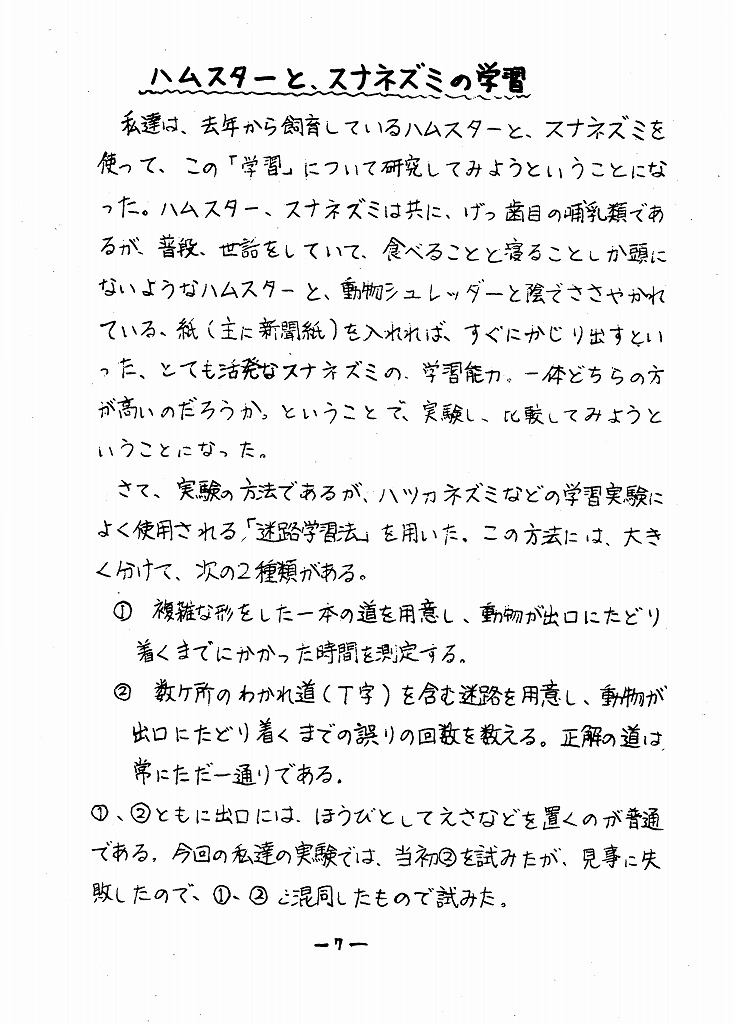 ハムスターと、スナネズミの学習
私達は、去年から飼育しているハムスターと、スナネズミを
使って、この「学習」について研究してみようということにな
った。ハムスター、スナネズミは共に、げっ歯目の哺乳類であ
るが、普段、世話をしていて、食べることと寝ることしか頭に
ないようなハムスターと、動物シュレッダーと陰でささやかれ
ている、紙(主に新聞紙)を入れれば、すぐにかじり出すとい
った、とても活発なスナネズミの、学習能力。一体どちらの方
が高いのだろうか。ということで、実験し、比較してみようと
いうことになった。
さて、実験の方法であるが、ハツカネズミなどの学習実験に
よく使用される、「迷路学習法」を用いた。この方法には、大き
く分けて、次の2種類がある。
① 複雑な形をした一本の道を用意し、動物が出口にたどり
着くまでにかかった時間を測定する。
② 数ケ所のわかれ道(丁字)を含む迷路を用意し、動物が
出口にたどり着くまでの誤りの回数を数える。正解の道は
常にただ一通りである。
①、②ともに出口には、ほうびとしてえさなどを置くのが普通
である。今回の私達の実験では、当初②を試みたが、見事に失
敗したので、①、②を混同したもので試みた。
―7―